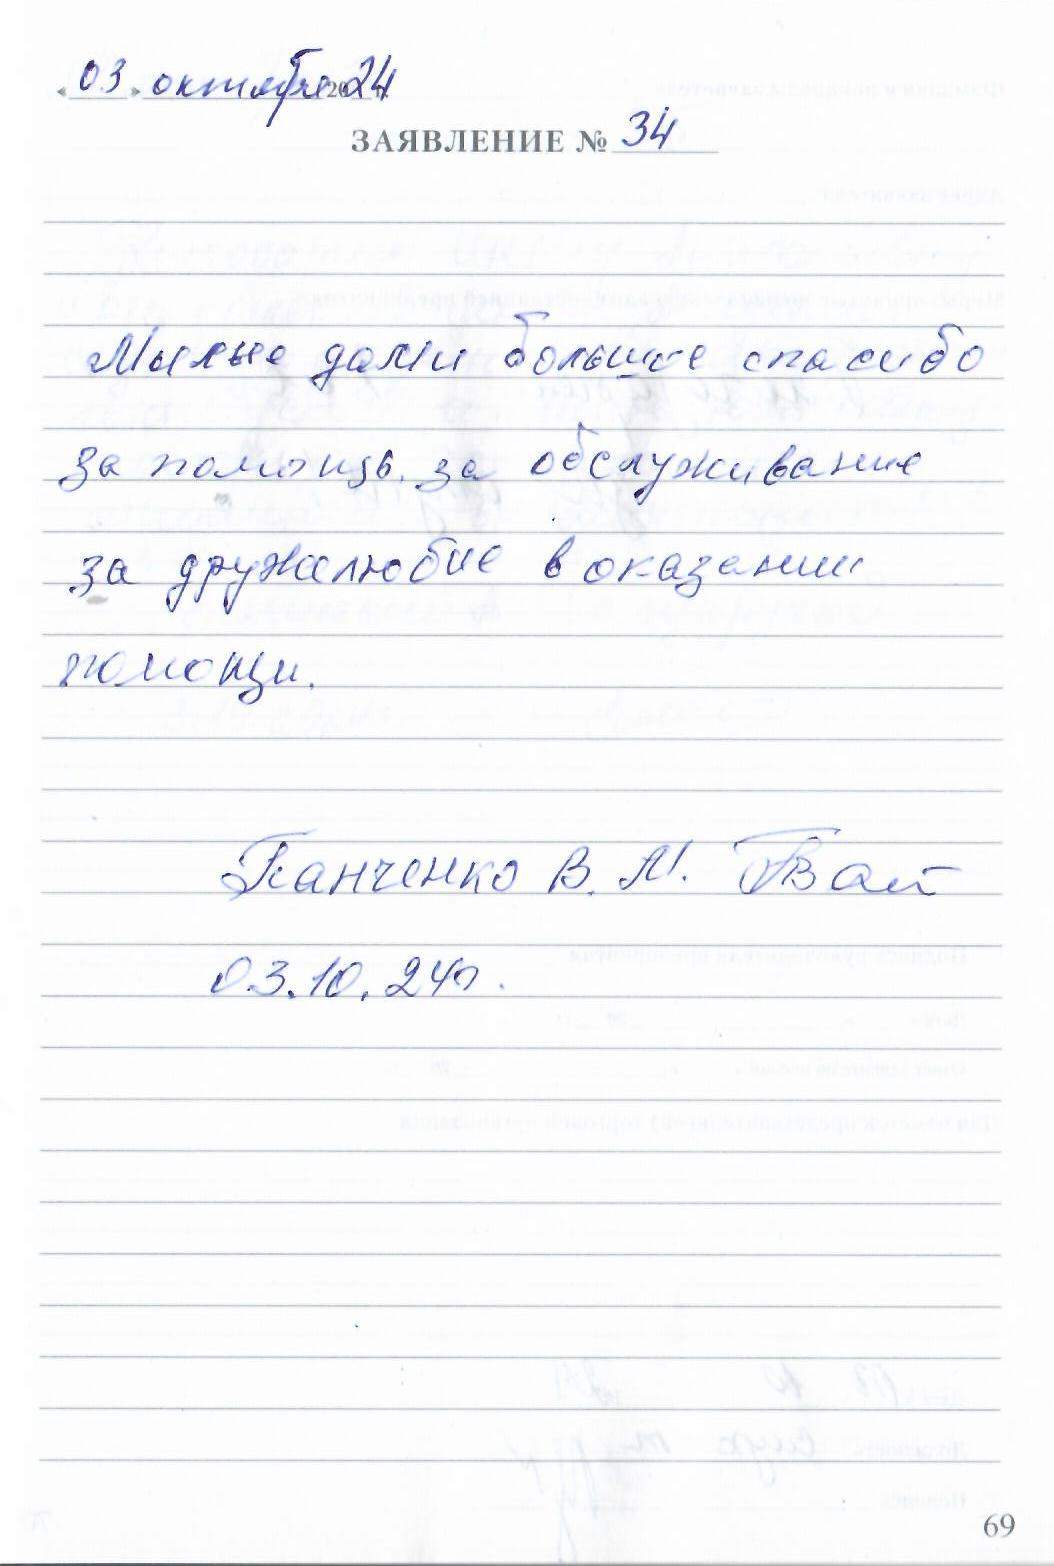 «03» октября 2024
ЗАЯВЛЕНИЕ № 34
Милые дамы большое спасибо
за помощь, за обслуживание
за дружелюбие в оказании
помощи.
Панченко В. М.
03.10.24г.
69